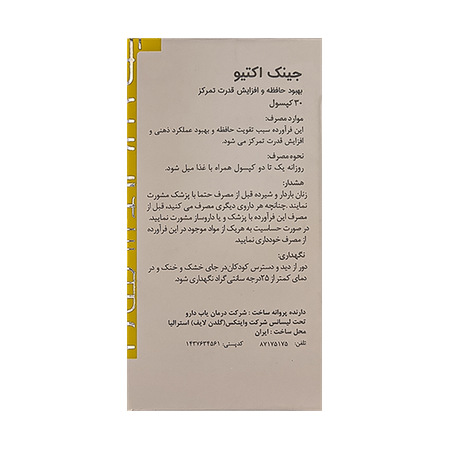 جینک اکتیو
بهبود حافظه و افزایش قدرت تمرکز
۳۰ کپسول
موارد مصرف:
این فرآورده سبب تقویت حافظه و بهبود عملکرد ذهنی و
افزایش قدرت تمرکز می شود.
نحوه مصرف:
روزانه یک تا دو کپسول همراه با غذا میل شود.
هشدار:
زنان باردار و شیرده قبل از مصرف حتما با پزشک مشورت
نمایند.چنانچه هر داروی دیگری مصرف می کنید، قبل از
مصرف این فرآورده با پزشک و یا داروساز مشورت نمایید.
در صورت حساسیت به هریک از مواد موجود در این فرآورده
از مصرف خودداری نمایید.
نگهداری:
دور از دید و دسترس کودکان،در جای خشک و خنک و در
دمای کمتر از ۲۵درجه سانتی گراد نگهداری شود.
دارنده پروانه ساخت : شرکت درمان یاب دارو
تحت لیسانس شرکت وایتکس(گلدن لایف) استرالیا
محل ساخت : ایران
تلفن: ۸۷۱۷۵۱۷۵ کدپستی: ۱۴۳۷۶۳۴۵۶۱